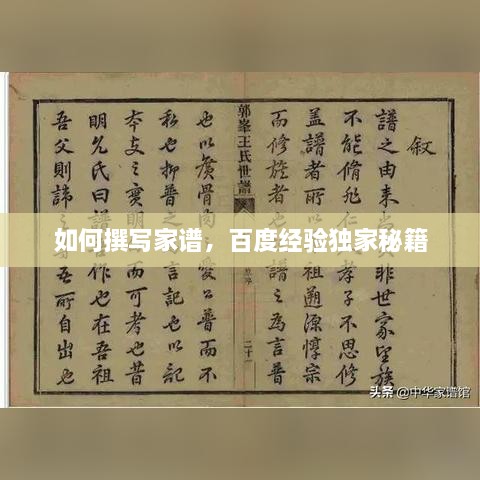 叙
譜之由来尚非世家望族
不能脩非仁孝子不思修
盖譜者所以祖遡源惇宗
而修族者譜之為言普
郭峯王氏世譜
二十一
也以廣骨愛公普而不
私也抑普之也以記
本支之實明而可考也昔
明允氏曰譜作在吾祖
吾父則諱之自出也
如何撰写家谱，百度经验独家秘籍
头条 @中华家谱馆